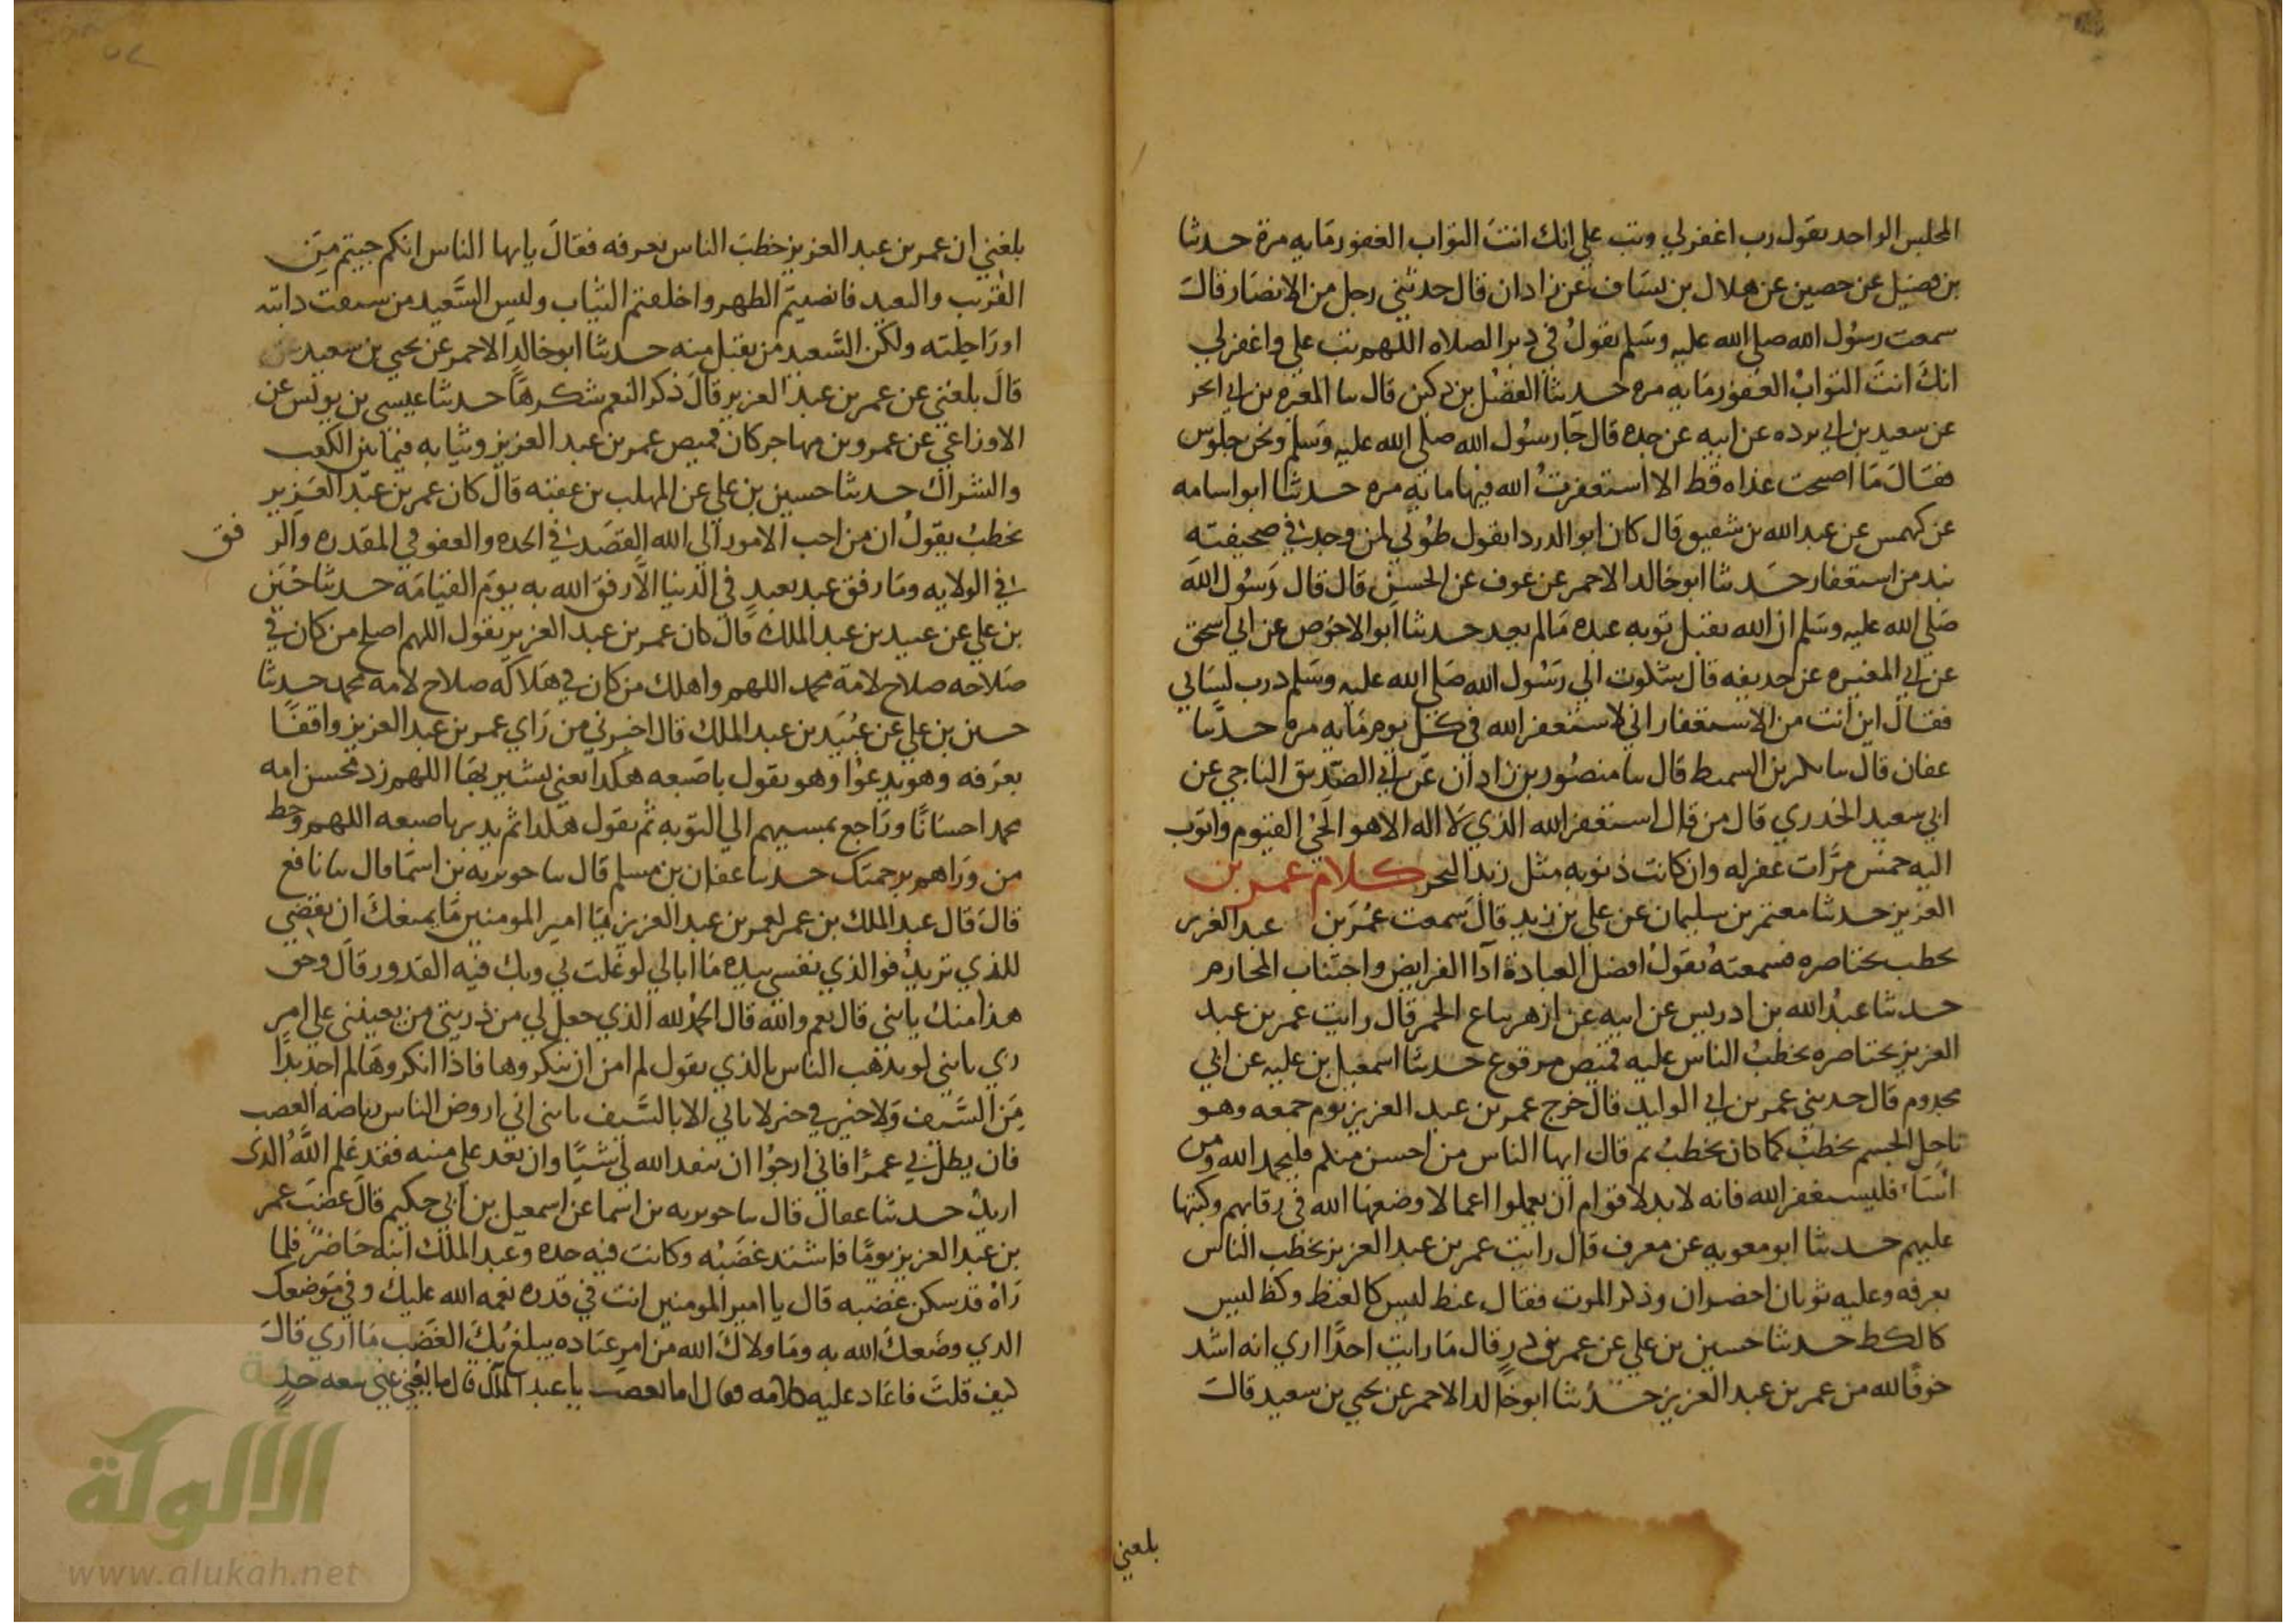 المجلس الواحد يقول رب اغفر لي وتب علي انك انت التواب الغفور مايه مرة حدثنا
بن فضيل عن حصين عن هلال بن يساف عن زادان قال حدثني رجل من الانصار قال
سمعت رسول الله صلى الله عليه وسلم يقول في دبر الصلاه اللهم تب علي واغفر لي
انك انت التواب الغفور مايه مره حدثنا الفضل بن دكين قال سا المغره بن ابي الحر
عن سعيد بن ابي برده عن ابيه عن جده قال جا رسول الله صلى الله عليه وسلم ونحن جلوس
فقال ما اصبحت غداه قط الا استغفرت الله فيها مايه مره حدثنا ابو اسامه
عن كهمس عن عبد الله بن شقيق قال كان ابو الدردا يقول طوبي لمن وجد في صحيفته
نبد من استغفار حدثنا ابو خالد الاحمر عن عوف عن الحسن قال قال رسول الله
صلى الله عليه وسلم ان الله يقبل توبه عبده مالم حدثنا ابو الاحوص عن ابي اسحق
عن ابي المغيره عن حديفه قال شكوت الي رسول الله صلى الله عليه وسلم درب لساني
فقال اين انت من الاستغفار اني لاستغفر الله في كل يوم مايه مره حدثنا
عفان قال سا بكر بن السميط قال سا منصور بن زادان عن ابي الصديق الناجي عن
ابي سعيد الخدري قال من قال استغفر الله الذي لا اله الا هو الحي القيوم واتوب
اليه خمس مرات غفر له وان كانت ذنوبه مثل زبد البحر كلام عمر بن
العزيز حدثنا معتمر بن سليمان عن علي بن زيد قال سمعت عمر بن عبد العزيز
يخطب بخناصره فسمعته يقول افضل العبادة ادا الفرايض واجتناب المحارم
حدثنا عبد الله بن ادريس عن ابيه عن ازهر بياع الخمر قال رايت عمر بن عبد
العزيز بخناصره يخطب الناس عليه قميص مرقوع حدثنا اسمعيل بن عليه عن ابي
مخدوم قال حدثني عمر بن ابي الوليد قال خرج عمر بن عبد العزيز يوم جمعه وهو
ناحل الجسم يخطب كما كان يخطب ثم قال ايها الناس من احسن منكم فليحمد الله ومن
اسا فليستغفر الله فانه لا بد لاقوام ان يعملوا اعمالا وضعها الله في رقابهم وكتبها
عليهم حدثنا ابو معويه عن معرف قال رايت عمر بن عبد العزيز يخطب الناس
بعرفه وعليه ثوبان اخضران وذكر الموت فقال غنظ ليس كالغنظ وكظ ليس
كالكظ حدثنا حسين بن علي عن عمر بن ذر قال ما رايت احدا اري انه اشد
خوفا لله من عمر بن عبد العزيز حدثنا ابو خالد الاحمر عن يحيي بن سعيد قال
بلغني
بلغني ان عمر بن عبد العزيز خطب الناس بعرفه فقال يايها الناس انكم جيتم من
القريب والبعيد فانضيتم الظهر واخلقتم الثياب وليس السعيد من سبقت دابته
او راحلته ولكن السعيد من يقبل منه حدثنا ابو خالد الاحمر عن يحيي بن سعيد
قال بلغني عن عمر بن عبد العزيز قال ذكر النعم شكرها حدثنا عيسي بن يونس عن
الاوزاعي عن عمرو بن مهاجر كان قميص عمر بن عبد العزيز وثيابه فيما بين الكعب
والشراك حدثنا حسين بن علي عن المهلب بن عقبه قال كان عمر بن عبد العزيز
يخطب يقول ان من احب الامور الي الله القصد في الجده والعفو في المقدره والر فق
في الولايه وما رفق عبد بعبد في الدنيا الا رفق الله به يوم القيامه حدثنا حسين
بن علي عن عبيد بن عبد الملك قال كان عمر بن عبد العزيز يقول اللهم اصلح من كان في
صلاحه صلاح لامة محمد اللهم واهلك من كان في هلاكه صلاح لامه محمد حدثنا
حسين بن علي عن عبيد بن عبد الملك قال اخبرني من راي عمر بن عبد العزيز واقفا
بعرفه وهو يدعوا وهو يقول باصبعه هكذا يعني يشير بها اللهم زد محسن امه
محمد احسانا وراجع بمسيهم الي التوبه ثم يقول هكذا ثم يدير باصبعه اللهم وحط
من وراهم برحمتك حدثنا عفان بن مسلم قال سا جويريه بن اسما قال سا نافع
قال قال عبد الملك بن عمر لعمر بن عبد العزيز يا امير المومنين ما يمنعك ان تمضي
للذي تريد فوالذي نفسي بيده ما ابالي لو غلت بي وبك فيه القدور قال وحق
هذا منك يابني قال نعم والله قال الحمد لله الذي جعل لي من ذريتي من يعينني علي امر
دي يابني لو بدهت الناس بالذي يقول لم امن ان ينكروها فاذا انكروها لم اجد بدا
من السيف ولا خير في خير لا ياتي الا بالسيف يابني اني اروض الناس رياضه الصعب
فان يطل بي عمر فاني ارجوا ان ينفد الله لي شيا وان تعد علي منيه فقد علم الله الذي
اريد حدثنا عفان قال سا جويريه بن اسما عن اسمعيل بن ابي حكيم قال غضب عمر
بن عبد العزيز يوما فاشتد غضبه وكانت فيه حده وعبد الملك ابنه حاضر فلما
راه قد سكن غضبه قال يا امير المومنين انت في قدره نعمه الله عليك وفي موضعك
الذي وضعك الله به وما ولاك الله من امر عباده يبلغ بك الغضب ما اري قال
كيف قلت فاعاد عليه كلامه فقال اما تغضب يا عبد الملك قال ما يغني عني سعه
الألوكة
www.alukah.net